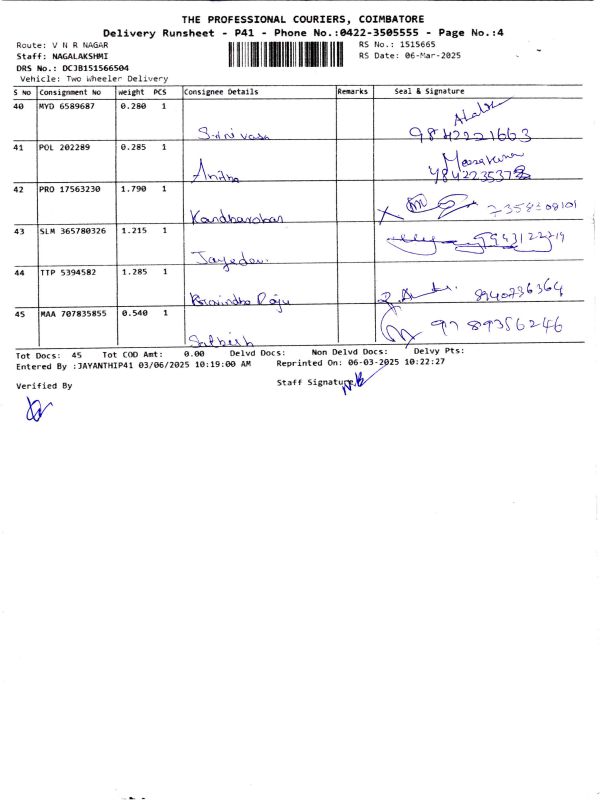 THE PROFESSIONAL COURIERS, COIMBATORE
Delivery Runsheet - P41 - Phone No.:0422-3505555 - Page No.:4
Route: V N R NAGAR RS No.: 1515665
Staff: NAGALAKSHMI RS Date: 06-Mar-2025
DRS No.: DCJB151566504
Vehicle: Two Wheeler Delivery
S No Consignment No Weight PCS Consignee Details Remarks Seal & Signature
40 MYD 6589687 0.280 1
Srinivasa 9842221663
41 POL 202289 0.285 1
Anitha
42 PRO 17563230 1.790 1
43 SLM 365780326 1.215 1
44 TTP 5394582 1.285 1
8940736364
45 MAA 707835855 0.540 1
9789356246
Tot Docs: 45 Tot COD Amt: 0.00 Delvd Docs: Non Delvd Docs: Delvy Pts:
Entered By :JAYANTHIP41 03/06/2025 10:19:00 AM Reprinted On: 06-03-2025 10:22:27
Verified By Staff Signature